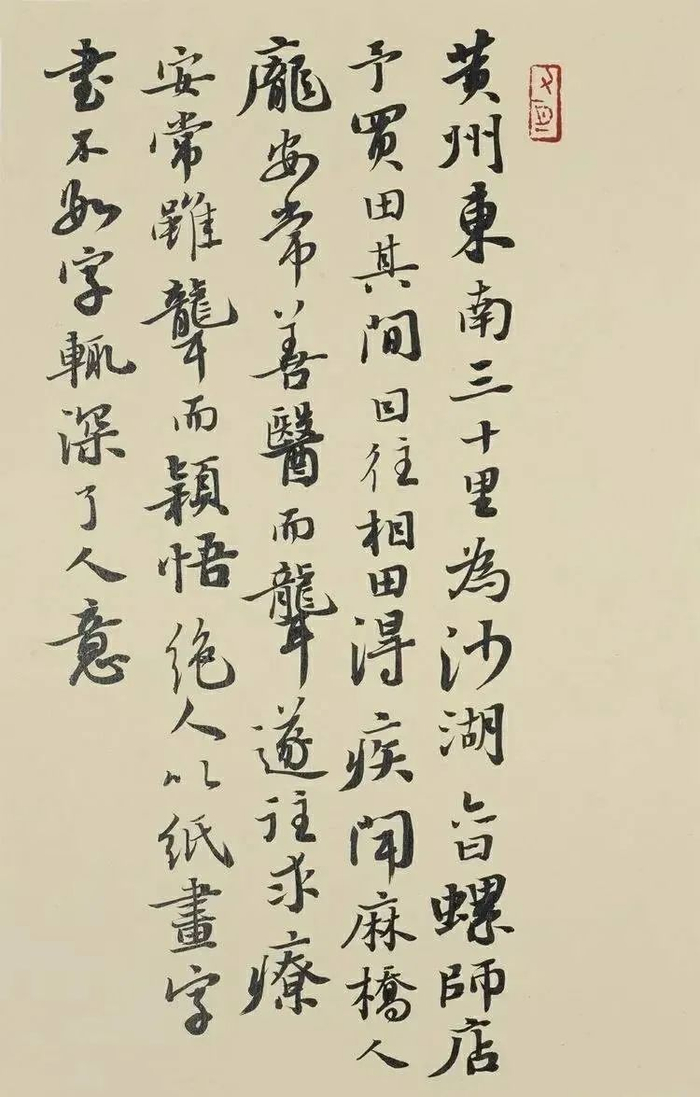 黄州東南三十里為沙湖亦曰螺師店
予買田其間因往相田得疾聞麻橋人
龐安常善醫而聾遂往求療
安常雖聾而穎悟絕人以紙畫字
書不數字輒深了人意